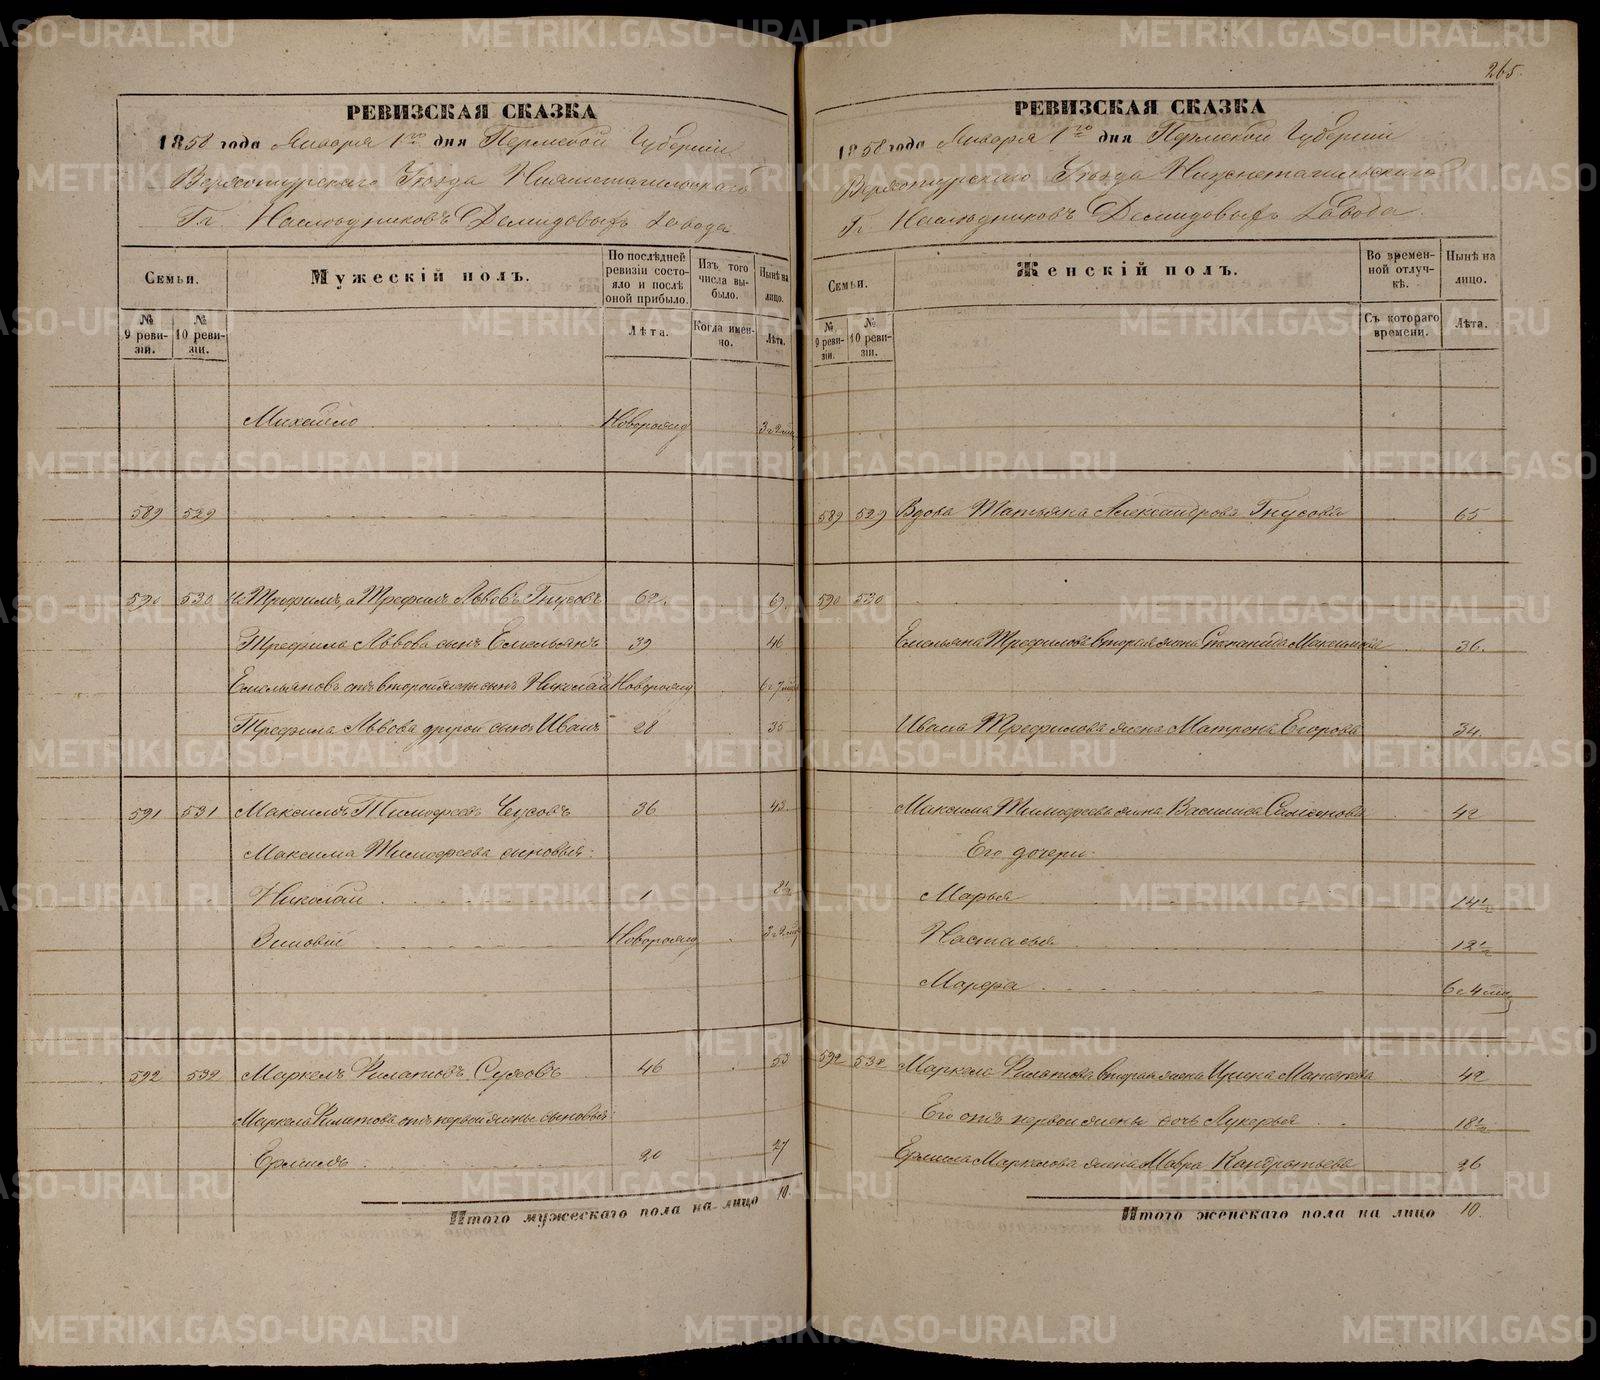 265.
РЕВИЗСКАЯ СКАЗКА
1858 года Января 1го дня Пермской Губернии
Верхотурскаго Уѣзда Нижнетагильскаго
Гг. Наслѣдниковъ Демидовыхъ Завода
Семьи.
Мужескій полъ.
По послѣдней ревизіи состояло и послѣ оной прибыло.
Изъ того числа выбыло.
Нынѣ на лицо.
№ 9 ревизіи.
№ 10 ревизіи.
Лѣта.
Когда именно.
Лѣта.
Михайло Новорожд 3 г 2 мц
589 529
590 530 Трефилъ Львовъ Гнусовъ 62. 69.
Трефила Львова сынъ Емельянъ 39 46
Емельяновъ отъ второй жены сынъ Николай Новорожд 6 г 7 мц
Трефила Львова другой сынъ Иванъ 28 35
591 531 Максимъ Тимофеевъ Чусовъ 36 43
Максима Тимофеева сыновья:
Николай 1 8½
Зиновій Новорожд 3 г 2 мц
592 532 Маркелъ Филатовъ Суховъ 46 53
Маркела Филатова отъ первой жены сыновья:
Ермилъ 20 27
Итого мужескаго пола на лицо 10.
РЕВИЗСКАЯ СКАЗКА
1858 года Января 1го дня Пермской Губерніи
Верхотурскаго Уѣзда Нижнетагильскаго
Гг. Наслѣдниковъ Демидовыхъ Завода.
Семьи.
Женскій полъ.
Во временной отлучкѣ.
Нынѣ на лицо.
№ 9 ревизіи.
№ 10 ревизіи.
Съ котораго времени.
Лѣта.
589 529 Вдова Татьяна Александрова Гнусова 65
590 530
Емельяна Трефилова вторая жена Степанида Максимова 36.
Ивана Трефилова жена Матрона Егорова 34.
Максима Тимофеева жена Василиса Семенова 42
Его дочери:
Марья 14½
Настасья 12½
Марфа 6 г 4 мц
592 532 Маркела Филатова вторая жена 42
Его отъ первой жены дочь Лукерья 18½
Ермила Маркелова жена Мавра Кондратьева 26
Итого женскаго пола на лицо 10.
METRIKI.GASO-URAL.RU